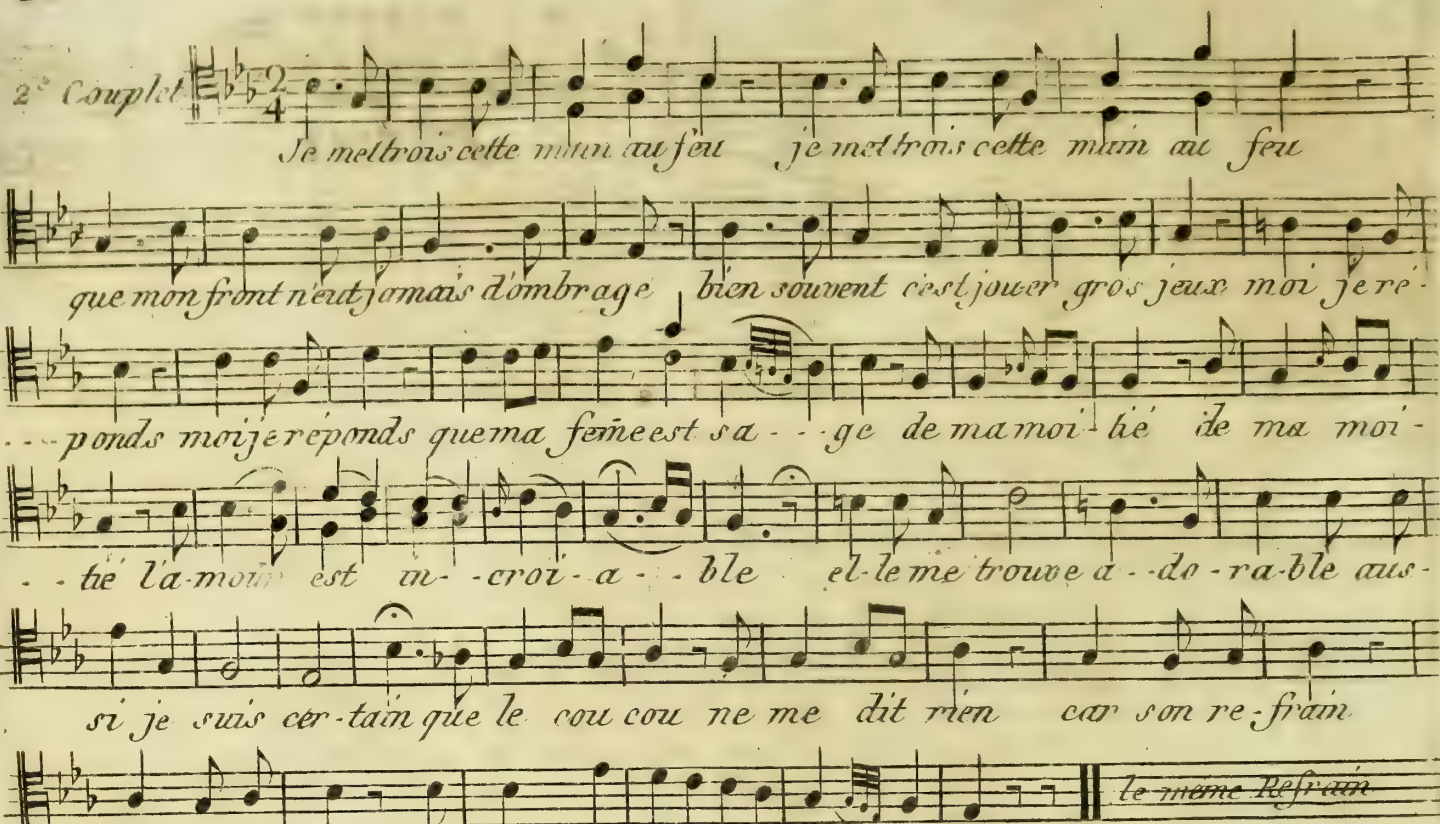 2e Couplet
2
4
Je mettrois cette main au feu je mettrois cette main au feu
que mon front n'eut jamais d'ombrage bien souvent c'est jouer gros jeux moi je ré-
---ponds moi je réponds que ma fem̃e est sa - - - ge de ma moi - tié de ma moi -
- - tié l'a-mour est in - - croi - a - - ble el-le me trouve a - - do - ra-ble aus-
si je suis cer-tain que le cou cou ne me dit rien car son re-frain
le même Refrain